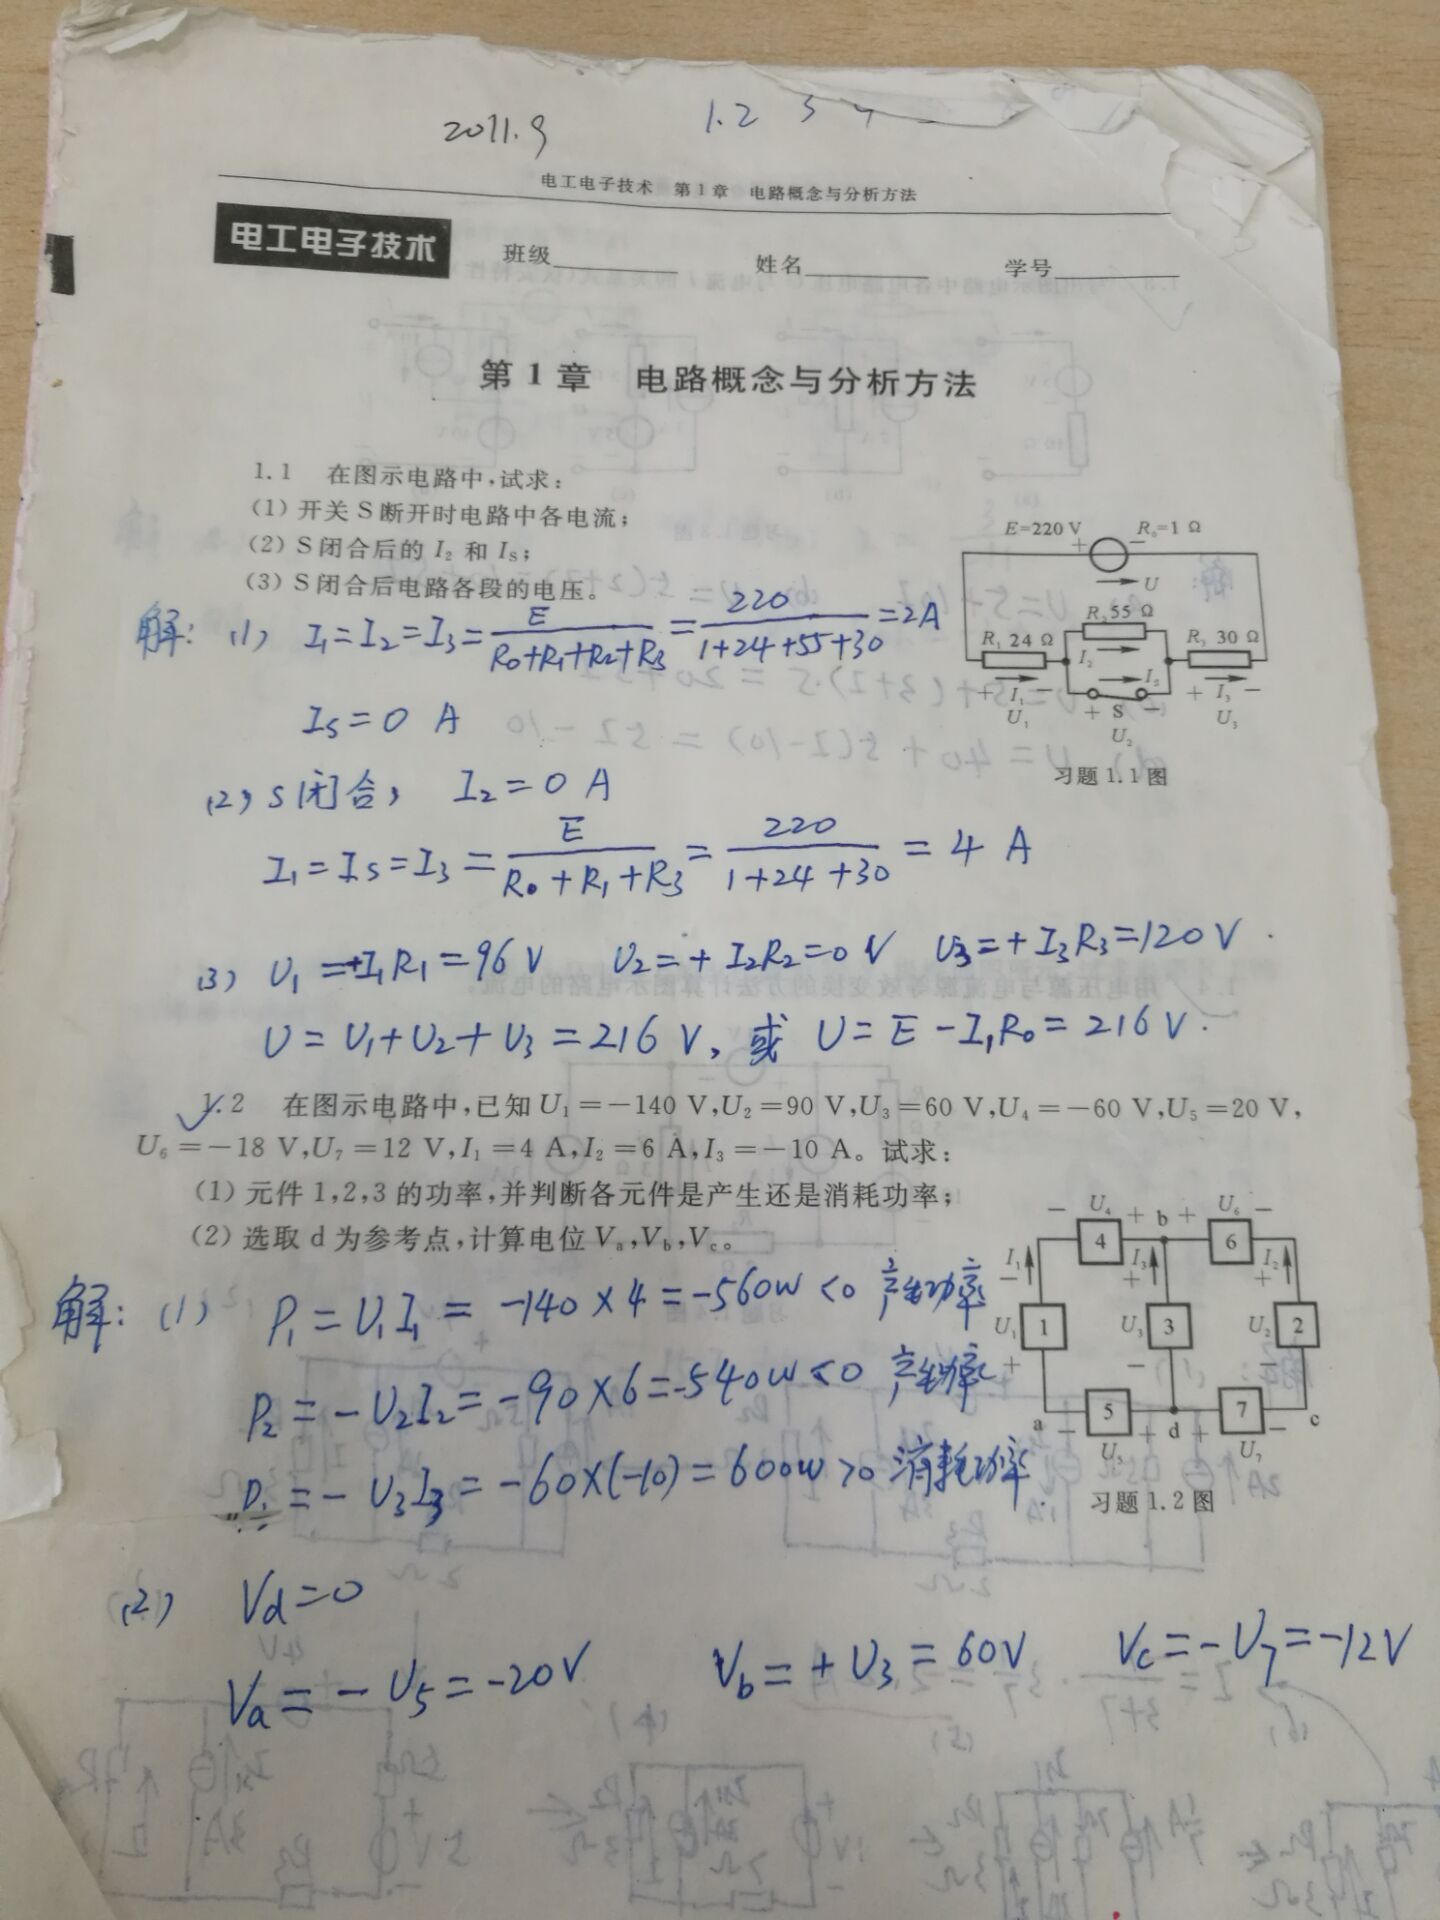 2011.9
1.2 3 4
电工电子技术 第1章 电路概念与分析方法
电工电子技术 班级 姓名 学号
第1章 电路概念与分析方法
1.1 在图示电路中,试求:
(1) 开关S断开时电路中各电流;
(2) S闭合后的 I₂ 和 Iₛ;
(3) S闭合后电路各段的电压。
E=220 V R₀=1 Ω
+ −
U
R₂55 Ω
R₁ 24 Ω I₂ R₃ 30 Ω
Iₛ
+ I₁ − + S − + I₃ −
U₁ U₂ U₃
习题1.1图
解: (1) I₁=I₂=I₃=E/(R₀+R₁+R₂+R₃)=220/(1+24+55+30)=2A
Iₛ=0 A
(2) S闭合, I₂=0 A
I₁=Iₛ=I₃=E/(R₀+R₁+R₃)=220/(1+24+30)=4 A
(3) U₁=+I₁R₁=96 V U₂=+I₂R₂=0 V U₃=+I₃R₃=120 V.
U=U₁+U₂+U₃=216 V, 或 U=E−I₁R₀=216 V.
1.2 在图示电路中,已知 U₁=−140 V,U₂=90 V,U₃=60 V,U₄=−60 V,U₅=20 V,
U₆=−18 V,U₇=12 V,I₁=4 A,I₂=6 A,I₃=−10 A。试求:
(1) 元件1,2,3的功率,并判断各元件是产生还是消耗功率;
(2) 选取d为参考点,计算电位 Vₐ,V_b,V_c。
− U₄ + b + U₆ −
4 6
I₁ I₃ I₂
− + +
U₁ 1 U₃ 3 U₂ 2
+ − −
5 7
a − + d + − c
U₅ U₇
习题1.2图
解: (1) P₁=U₁I₁=−140×4=−560w<0 产生功率
P₂=−U₂I₂=−90×6=−540w<0 产生功率
=−U₃I₃=−60×(−10)=600w>0 消耗功率.
(2) V_d=0
Vₐ=−U₅=−20V V_b=+U₃=60V V_c=−U₇=−12V